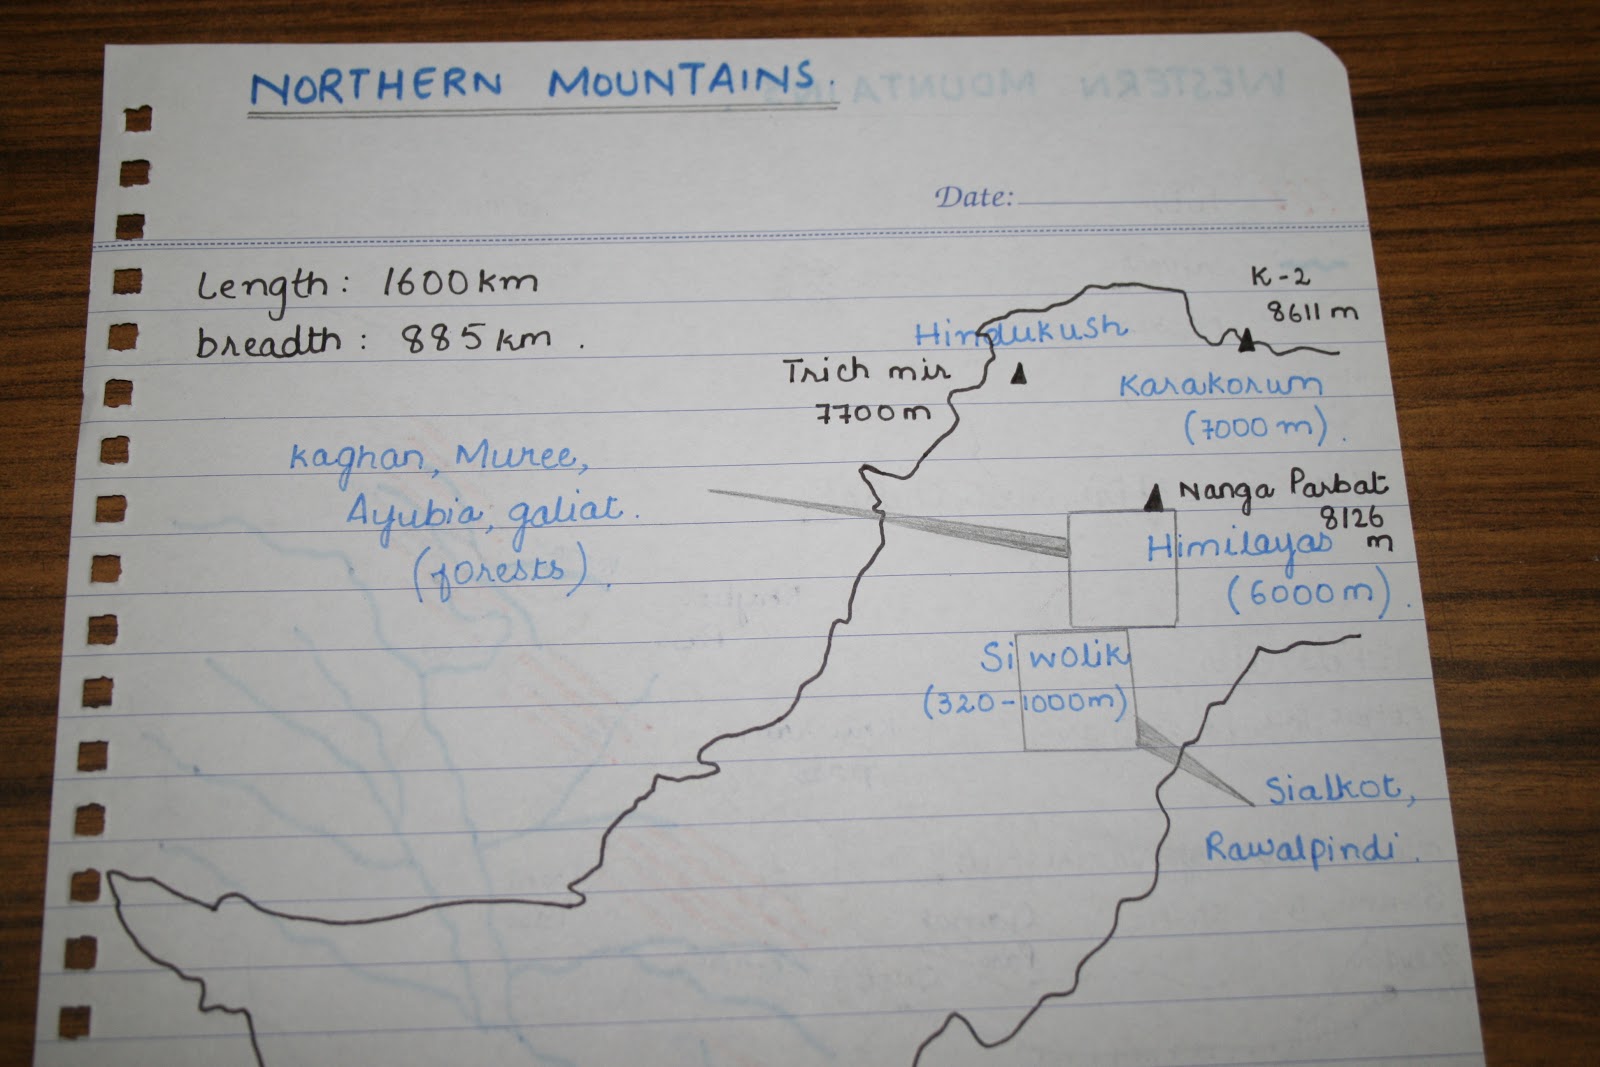 NORTHERN MOUNTAINS.
WESTERN MOUNTAINS
Date:
Length: 1600km
breadth: 885km.
K-2
8611m
Hindukush
Trich mir
7700m
Karakorum
(7000m).
Kaghan, Muree,
Ayubia, galiat.
(forests).
Nanga Parbat
8126
m
Himilayas
(6000m).
Siwolik
(320-1000m)
Sialkot,
Rawalpindi.